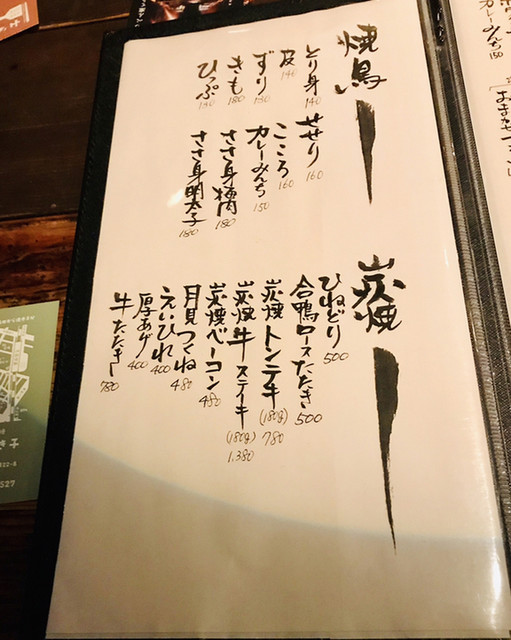 焼鳥
とり身 140
皮 140
ずり 130
きも 180
ひっぷ 140
せせり 160
こころ 160
カレーみんち 150
ささ身梅肉 180
ささ身明太子 180
炭焼
ひねどり 500
合鴨ロースたたき 500
炭焼トンテキ (180g) 780
炭焼牛ステーキ (180g) 1.380
炭焼ベーコン 480
月見つくね 480
えいひれ 400
厚あげ 400
牛たたき 780
カレーみんち 150